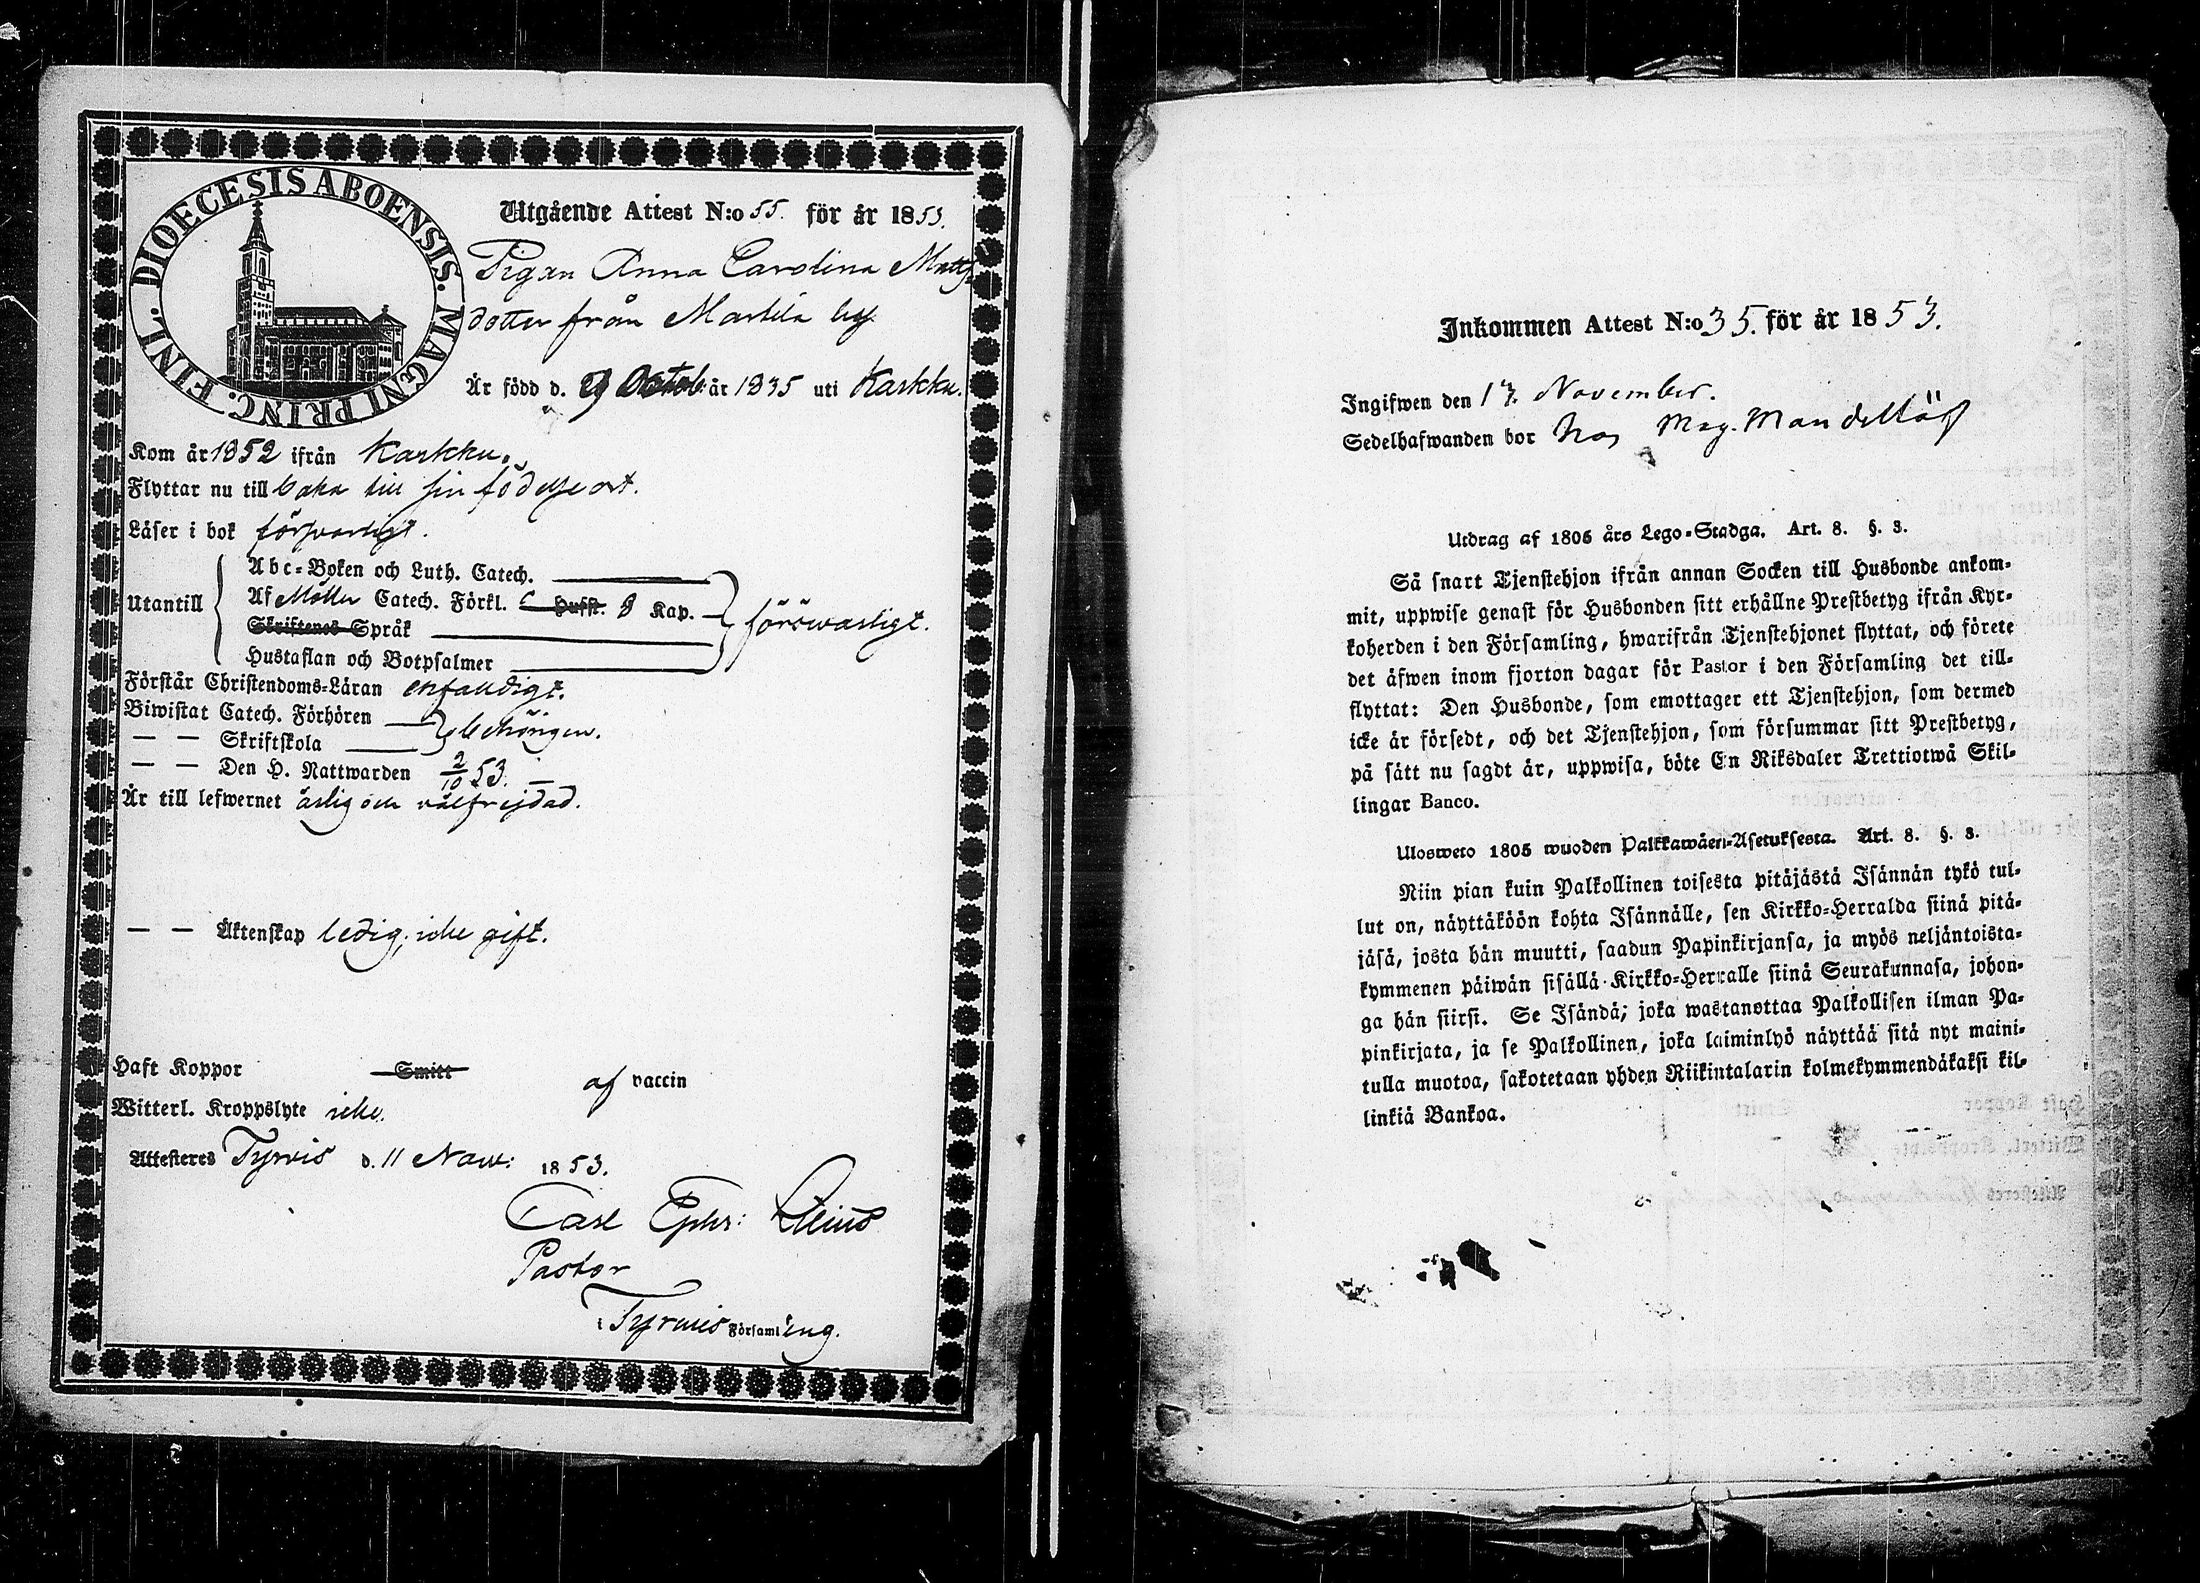 DIOECESIS ABOENSIS. MAGNI PRINC. FINL.
Utgående Attest N:o 55. för år 1853.
Pigan Anna Carolina Matts-
dotter från Marttila by.
Är född d. Octob: år 1835 uti Karkku.
Kom år 1852 ifrån Karkku.
Flyttar nu till baka till sin födelseort.
Läser i bok försvarligt.
Utantill
Abc-Boken och Luth. Catech.
Af Möller Catech. Förkl. Hufst. 8 Kap.
Skriftenes Språk
Hustaflan och Botpsalmer
försvarligt.
Förstår Christendoms-Läran enfaldigt.
Biwistat Catech. Förhören
— — Skriftskola
behörigen.
— — Den H. Nattwarden 2/10 53.
Är till lefwernet ärlig och välfrejdad.
— — Äktenskap ledig, icke gift.
Haft Koppor Smitt af vaccin
Witterl. Kroppslyte icke.
Attesteres Tyrvis d. 11 Nov: 1853.
Carl Ephr:
Pastor
i Tyrvis Församling.
Inkommen Attest N:o 35. för år 1853.
Ingifwen den 17. November.
Sedelhafwanden bor hos Mag. Mandellöf
Utdrag af 1805 års Lego-Stadga. Art. 8. §. 3.
Så snart Tjenstehjon ifrån annan Socken till Husbonde ankom-
mit, uppwise genast för Husbonden sitt erhållne Prestbetyg ifrån Kyr-
koherden i den Församling, hwarifrån Tjenstehjonet flyttat, och förete
det äfwen inom fjorton dagar för Pastor i den Församling det till-
flyttat: Den Husbonde, som emottager ett Tjenstehjon, som dermed
icke är försedt, och det Tjenstehjon, som försummar sitt Prestbetyg,
på sätt nu sagdt är, uppwisa, böte En Riksdaler Trettiotwå Skil-
lingar Banco.
Ulosweto 1805 wuoden Palkkawäen-Asetuksesta. Art. 8. §. 3.
Niin pian kuin Palkollinen toisesta pitäjästä Isännän tykö tul-
lut on, näyttäköön kohta Isännälle, sen Kirkko-Herralda siinä pitä-
jäsä, josta hän muutti, saadun Papinkirjansa, ja myös neljäntoista-
kymmenen päiwän sisällä Kirkko-Herralle siinä Seurakunnasa, johon-
ga hän siirsi. Se Isändä, joka wastanottaa Palkollisen ilman Pa-
pinkirjata, ja se Palkollinen, joka laiminlyö näyttää sitä nyt maini-
tulla muotoa, sakotetaan yhden Riikintalarin kolmekymmendäkaksi kil-
linkiä Bankoa.